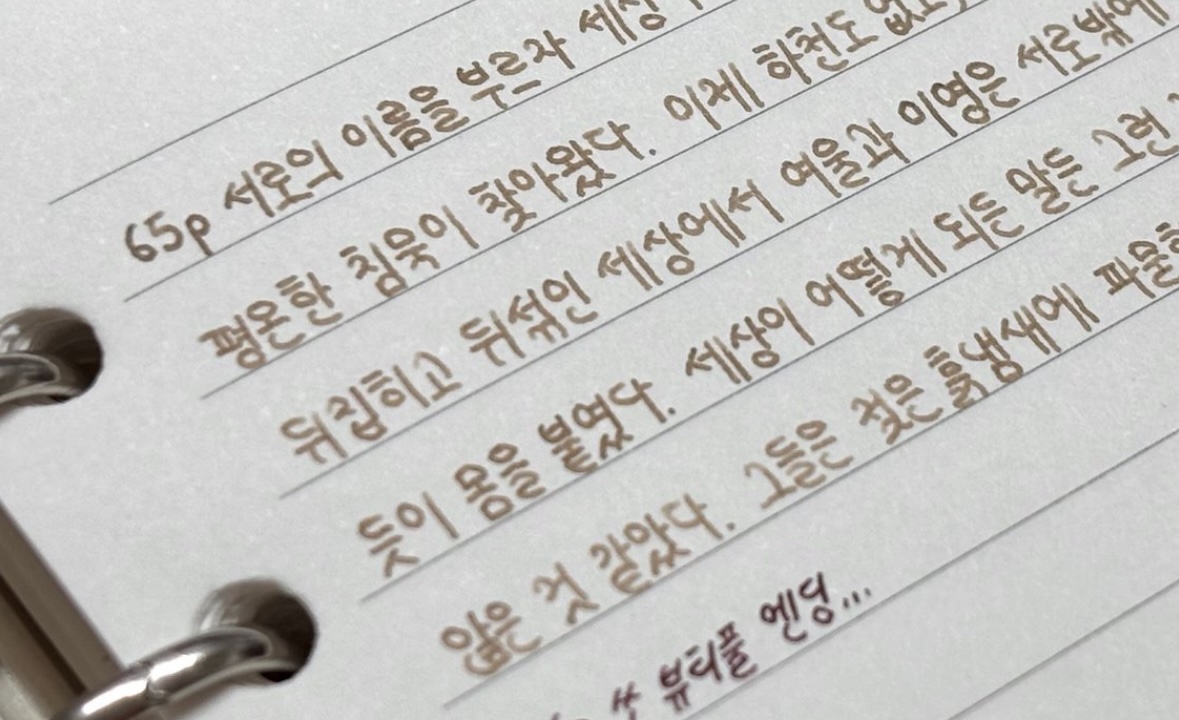 65p 서로의 이름을 부르자 세상
평온한 침묵이 찾아왔다. 이제 하천도 없고,
뒤집히고 뒤섞인 세상에서 여울과 이영은 서로밖에
듯이 몸을 붙였다. 세상이 어떻게 되든 말든 그런
않은 것 같았다. 그들은 젖은 흙냄새에
쏘 뷰티풀 엔딩...